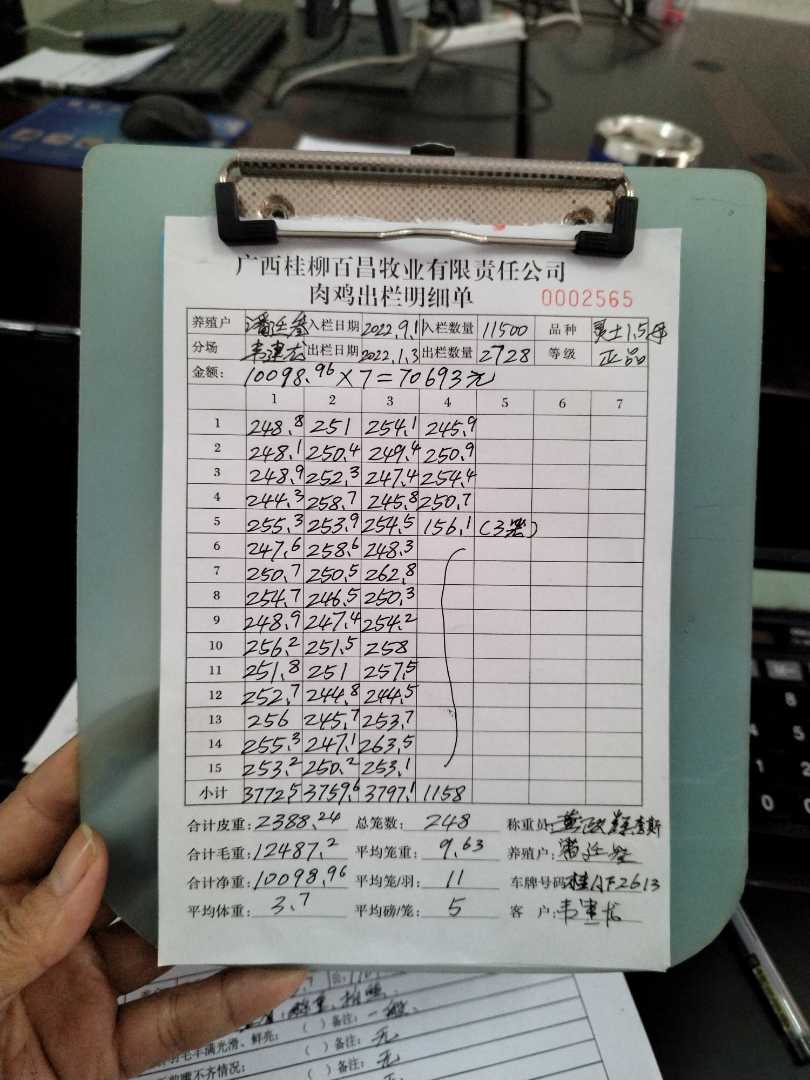 广西桂柳百昌牧业有限责任公司
肉鸡出栏明细单 0002565
养殖户 入栏日期 2022.9.1 入栏数量 11500 品种
分场 出栏日期 2022.1.3 出栏数量 2728 等级 正品
金额: 10098.96×7=70693元
1 2 3 4 5 6 7
1 248.8 251 254.1 245.9
2 248.1 250.4 249.4 250.9
3 248.9 252.3 247.4 254.4
4 244.3 258.7 245.8 250.7
5 255.3 253.9 254.5 156.1 (3笼)
6 247.6 258.6 248.3
7 250.7 250.5 262.8
8 254.7 246.5 250.3
9 248.9 247.4 254.2
10 256.2 251.5 258
11 251.8 251 257.5
12 252.7 244.8 244.5
13 256 245.7 253.7
14 255.3 247.1 263.5
15 253.2 250.2 253.1
小计 3772.5 3759.6 3797.1 1158
合计皮重: 2388.24 总笼数: 248 称重员:
合计毛重: 12487.2 平均笼重: 9.63 养殖户:
合计净重: 10098.96 平均笼/羽: 11 车牌号码:
平均体重: 3.7 平均磅/笼: 5 客 户:
毛丰满光滑、鲜亮: ( )备注: 一般.
不齐情况: ( )备注: 无
( )备注: 无